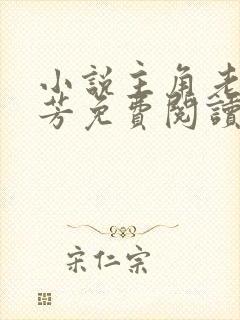 小說主角老
芳免費閱讀
宋仁宗